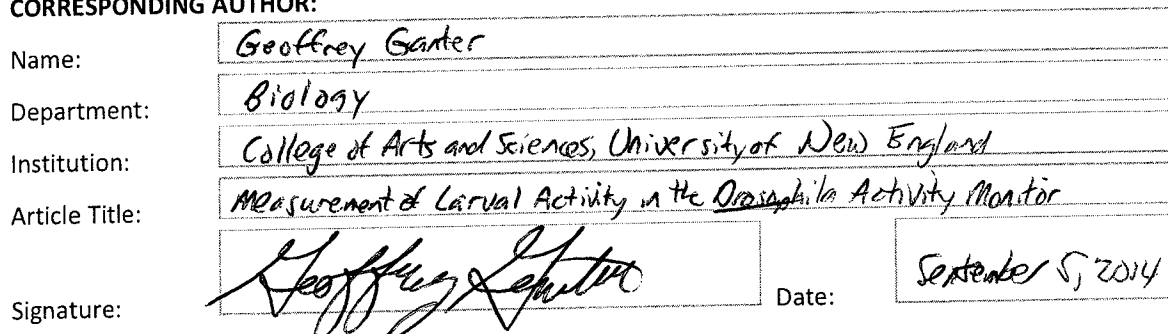 CORRESPONDING AUTHOR:
Name: Geoffrey Ganter
Department: Biology
Institution: College of Arts and Sciences, University of New England
Article Title: Measurement of Larval Activity in the Drosophila Activity Monitor
Signature: Geoffrey Ganter Date: September 5, 2014